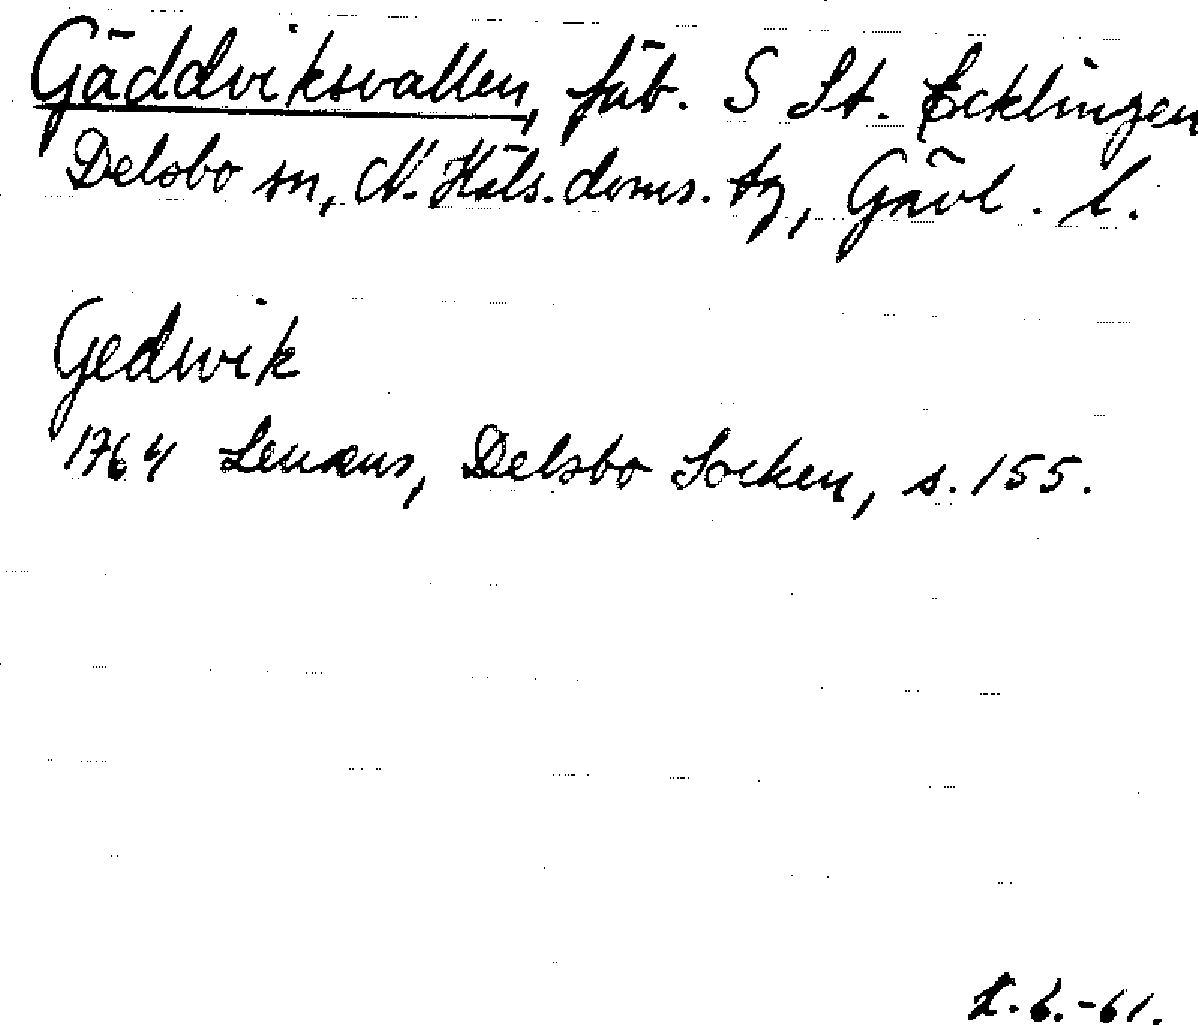 Gäddviksvallen, fäb. S St. Ecklingen
Delsbo sn, N. Häls. doms. tg, Gävl. l.
Gedwik
1764 Lenæus, Delsbo Socken, s. 155.
L.B.-61.